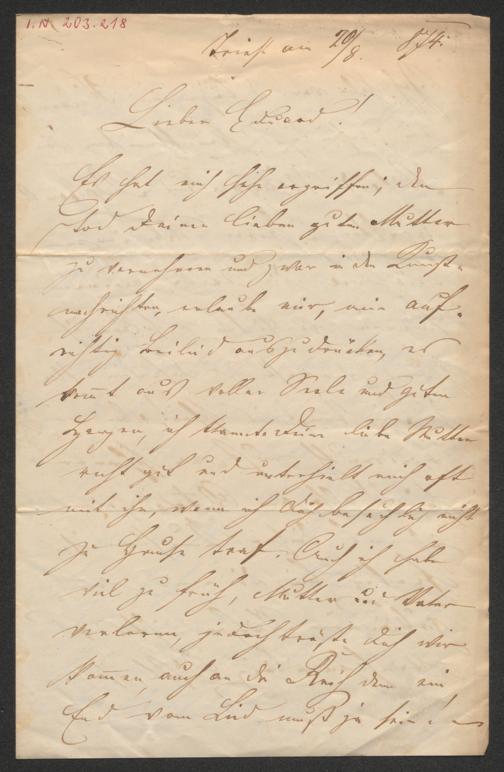 I. N 203.218
Triest am 29/8. 874.
Lieben Eduard!
Es hat mich sehr ergriffen, den
Tod Deiner lieben guten Mutter
zu vernehmen und zwar in den Kunst-
nachrichten, erlaube mir, mein auf-
richtig Beileid auszudrücken, es
kommt aus voller Seele und guten
Herzen, ich kannte Deine liebe Mutter
recht gut und unterhielt mich oft
mit ihr, wenn ich Dich besuchte, nicht
zu Hause traf. Auch ich habe
viel zu früh, Mutter und Vater
verloren, jedoch tröste Dich wir
kommen auch an die Reih denn ein
End vom Lied muß ja sein! –